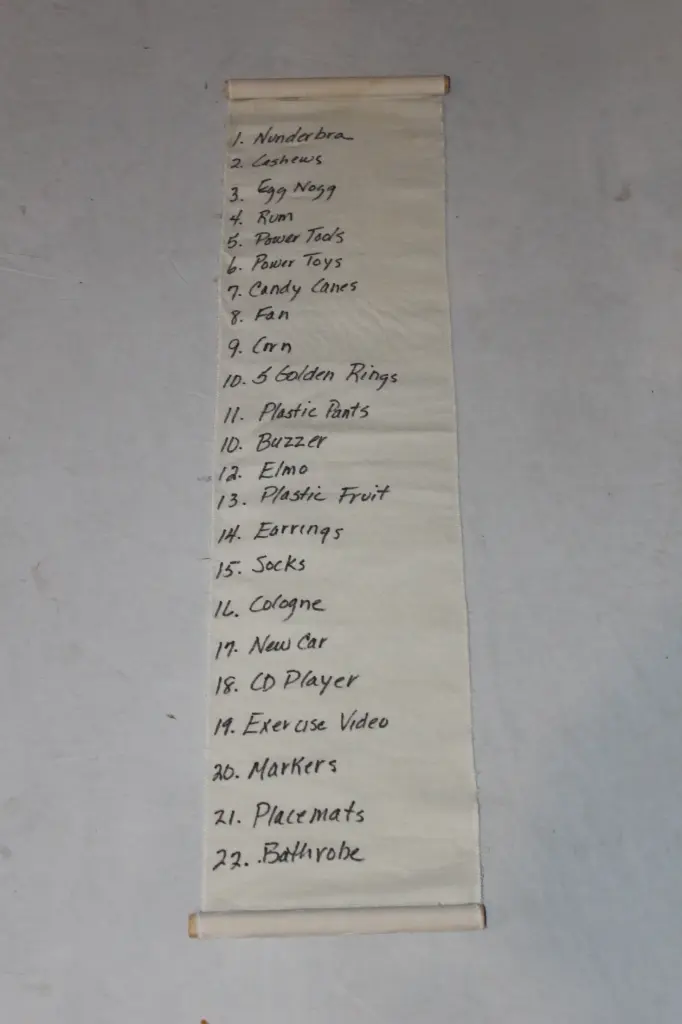 1. Nunderbra
2. Cashews
3. Egg Nogg
4. Rum
5. Power Tools
6. Power Toys
7. Candy Canes
8. Fan
9. Corn
10. 5 Golden Rings
11. Plastic Pants
10. Buzzer
12. Elmo
13. Plastic Fruit
14. Earrings
15. Socks
16. Cologne
17. New Car
18. CD Player
19. Exercise Video
20. Markers
21. Placemats
22. Bathrobe